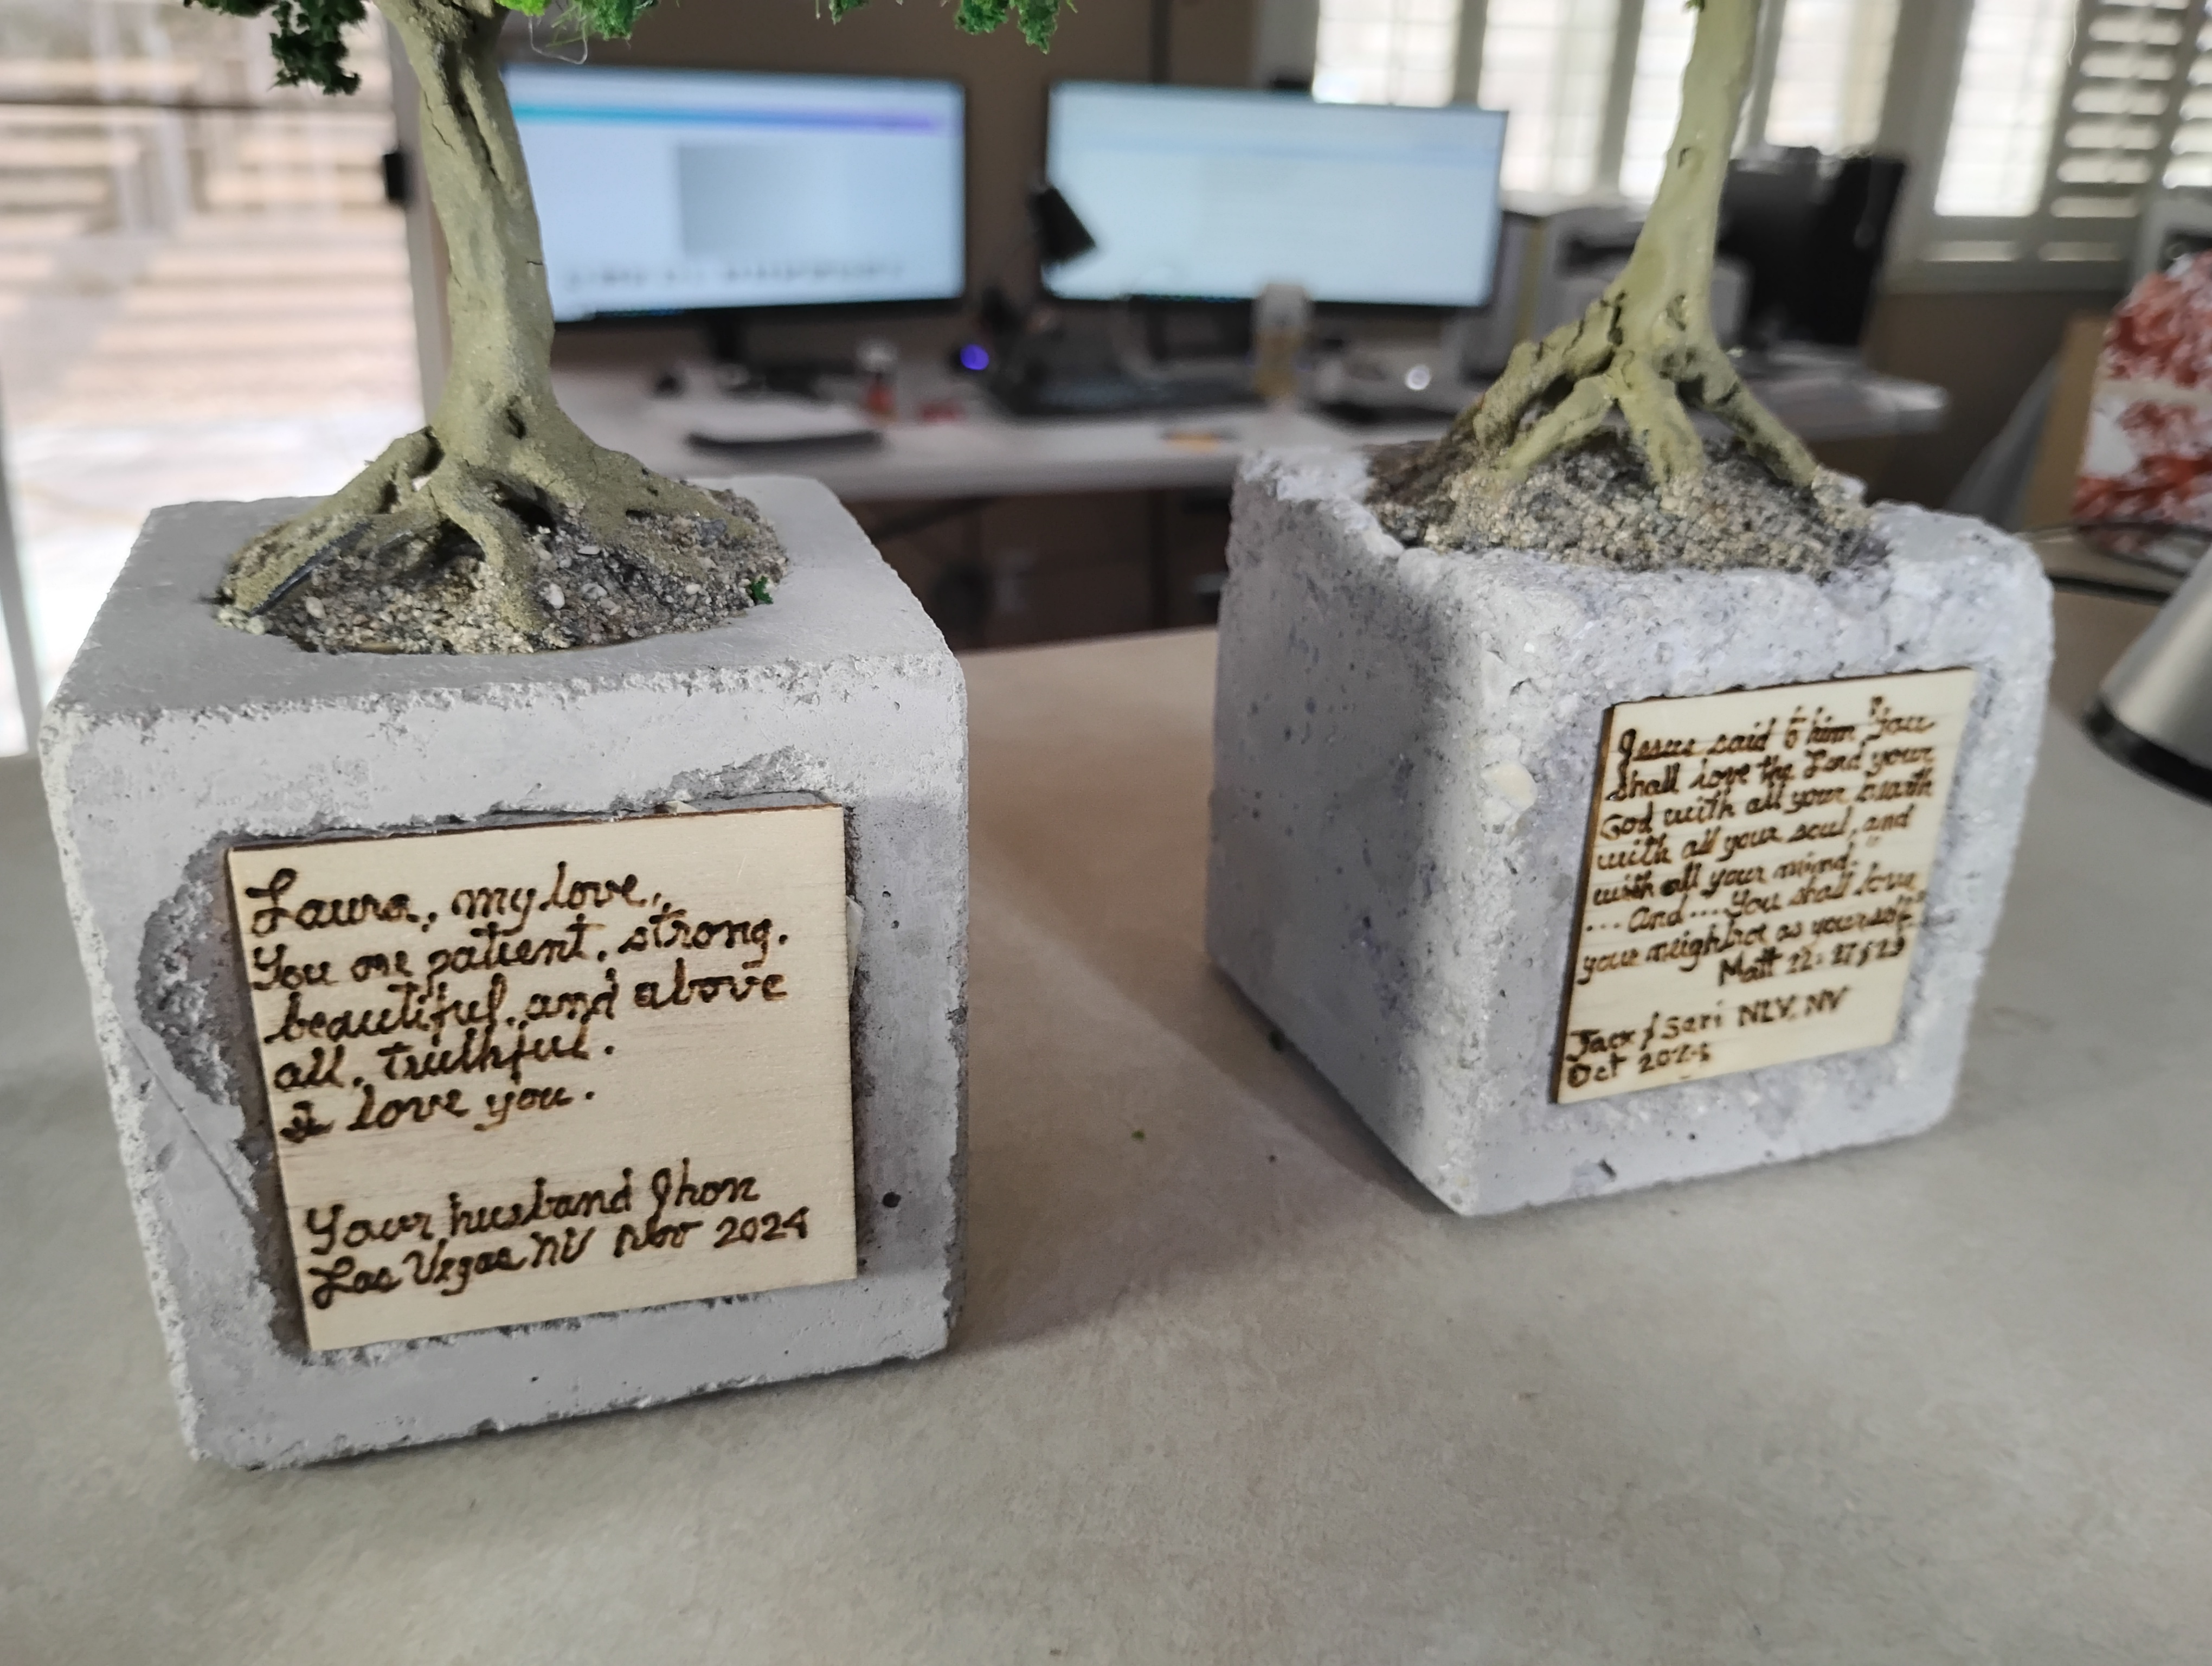 Laura, my love,
You are patient, strong,
beautiful, and above
all, truthful.
I love you.
Your husband Jhon
Las Vegas NV Nov 2024
Jesus said to him, "You
shall love the Lord your
God with all your
with all your soul, and
with all your mind."
... And ... You shall love
your neighbor as yourself."
Matt 22:
& Sari NLV, NV
Oct